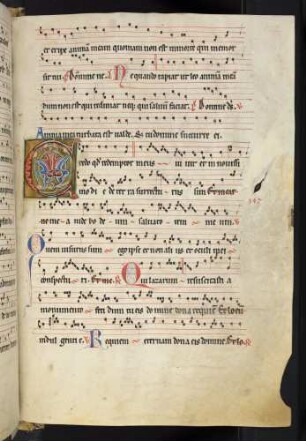 et eripe animā meam quoniam non est in morte qui memor
sit tui Domine ne Ne quando rapiat ut leo animā meā
dum non est qui redimat neqꝫ qui saluū faciat Domine de
Anima mea turbata est ualde Sed tu domine succurre ei
Credo qd redemptor meus uiuit et in nouissi
mo die de terra surrecturus sum Et in car
ne mea uidebo deum saluatorem meum
Quem uisurus sum ego ipse et non alius et oculi mei
conspecturi Et in carne Qui lazarum resuscitasti a
monumento fetidum tu eis domine dona requiē Et locū
indulgentie Requiem eternam dona eis domine Et lo